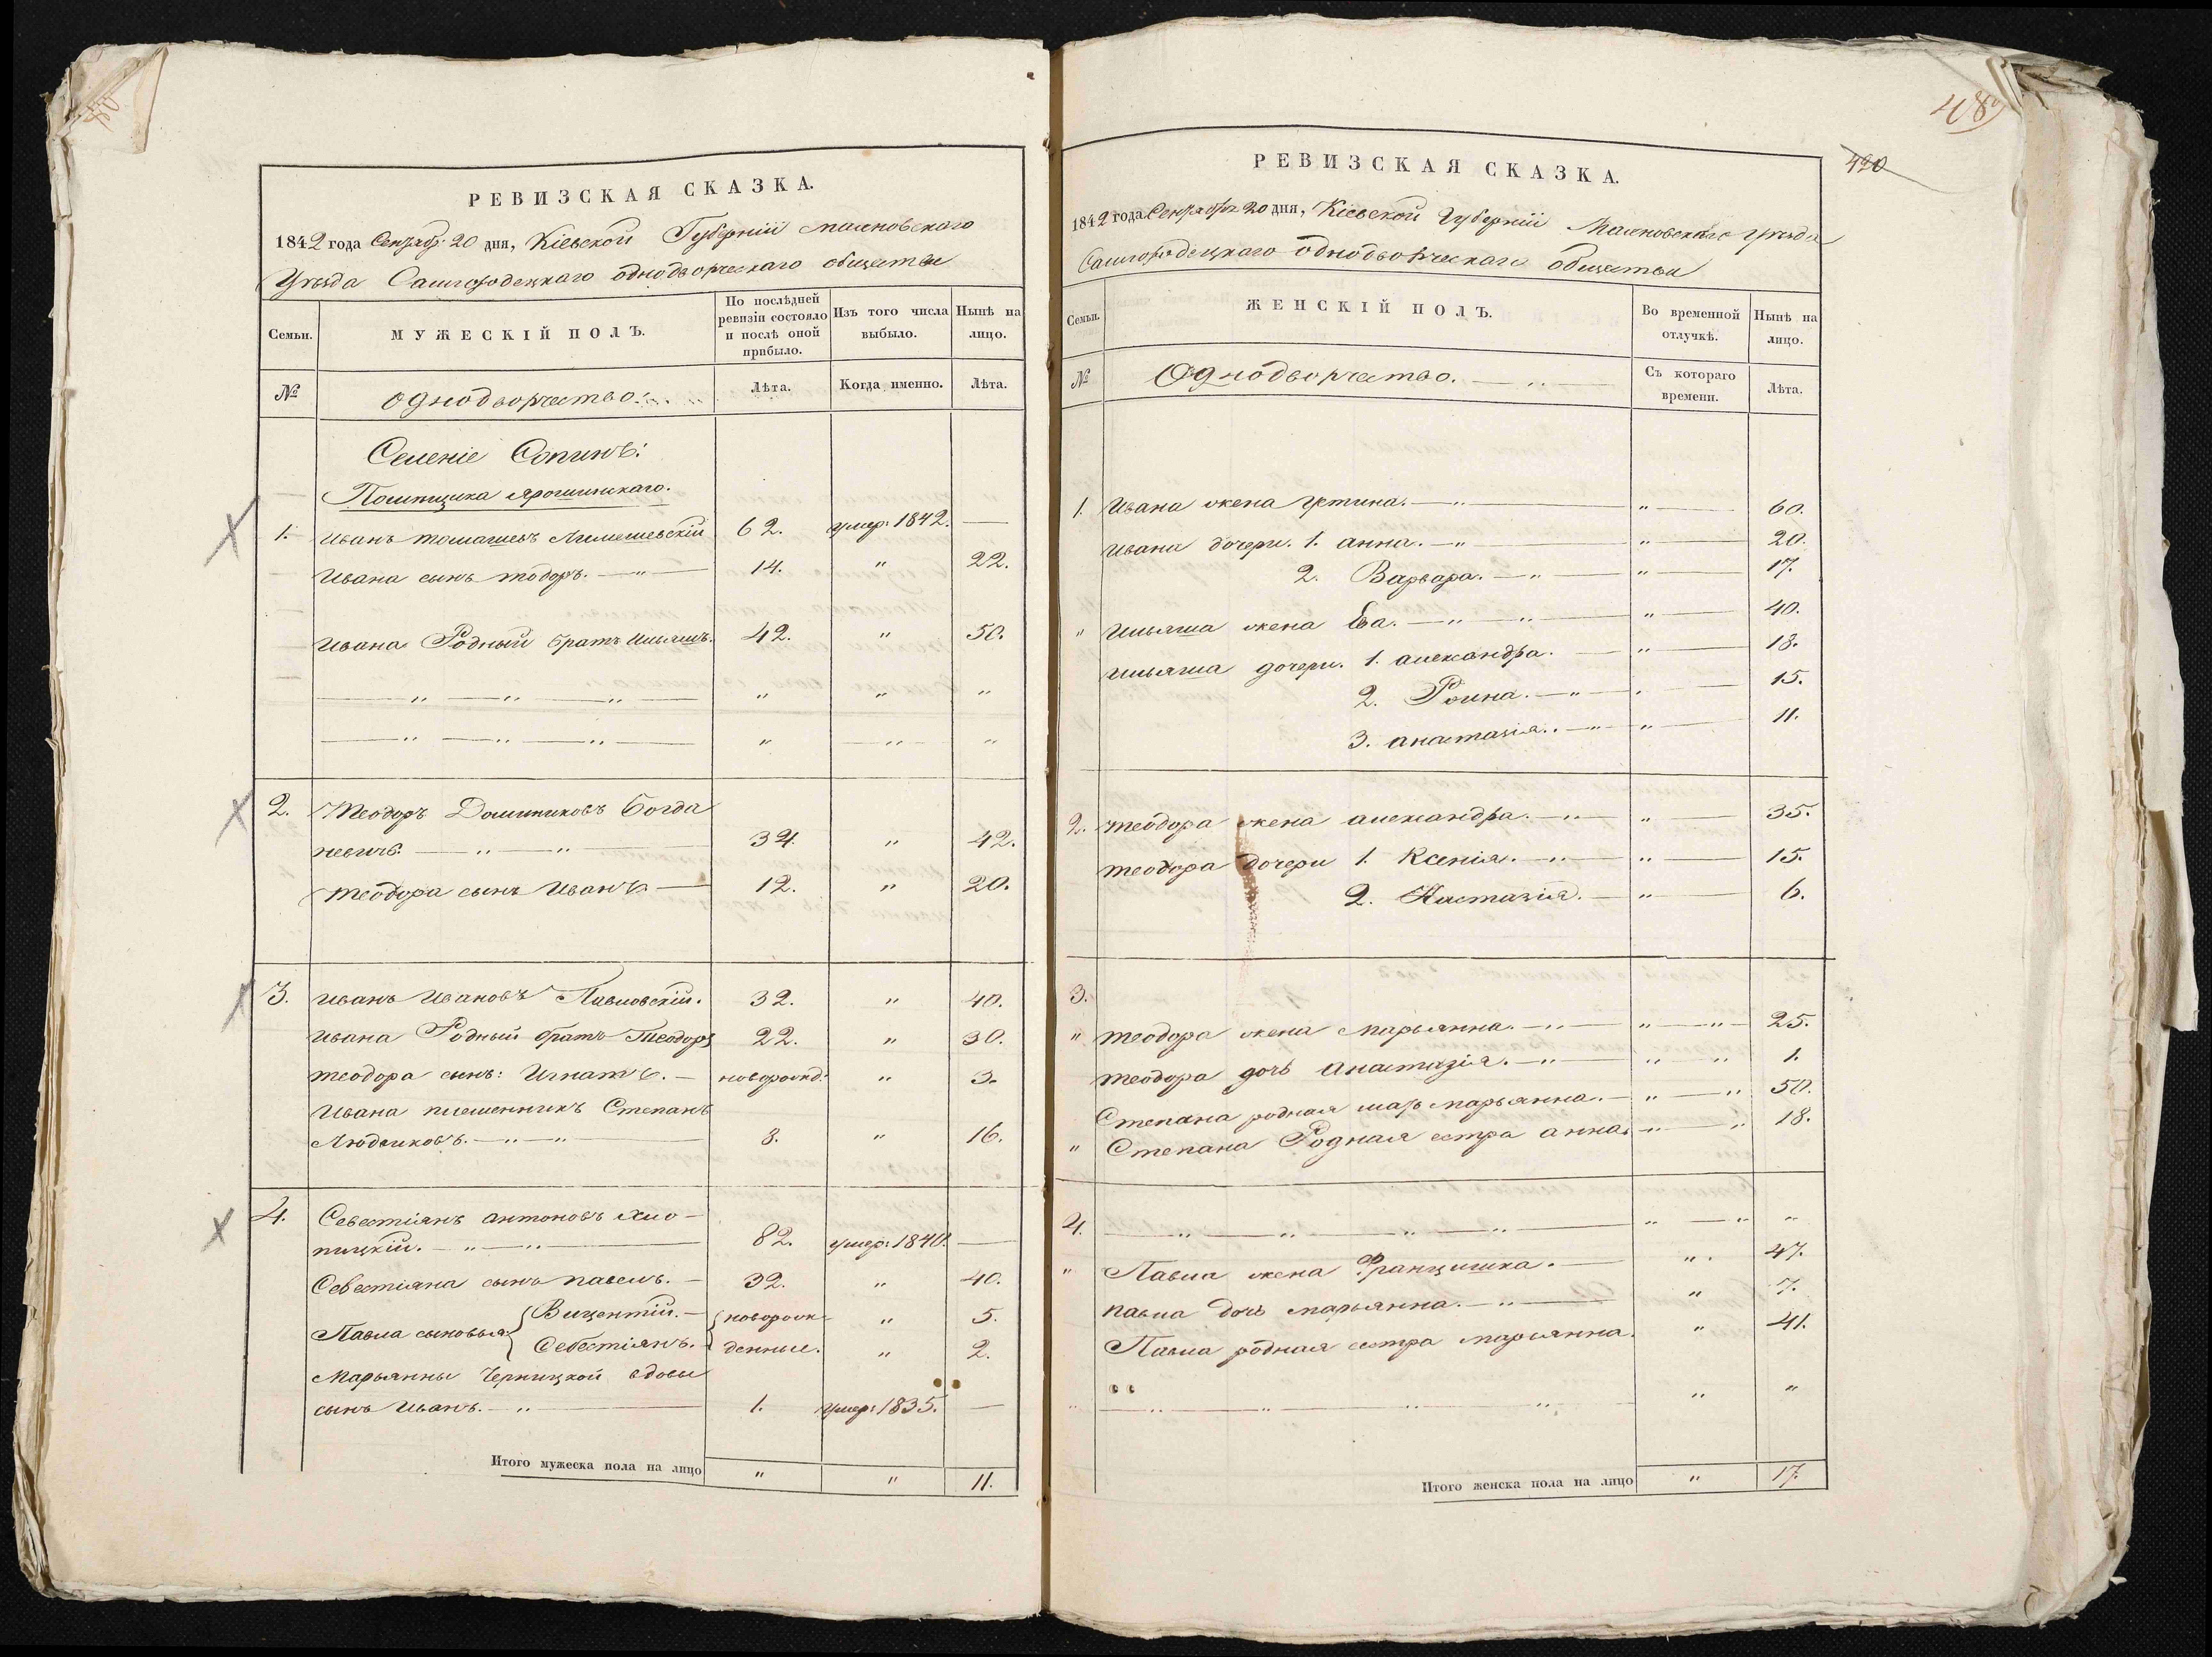 489
420
РЕВИЗСКАЯ СКАЗКА.
1842 года Сентябр: 20 дня, Кіевской Губерніи махновскаго
Уѣзда Самгородецкаго однодворческаго общества
Семьи.
МУЖЕСКІЙ ПОЛЪ.
По послѣдней ревизіи состояло и послѣ оной прибыло.
Изъ того числа выбыло.
Нынѣ на лицо.
№
однодворчество.
Лѣта.
Когда именно.
Лѣта.
Селеніе Сопинъ:
Помѣщика Ярошинскаго.
1. Иванъ томашевъ 62. умер: 1842. —
Ивана сынъ тодоръ. — " — 14. " 22.
Ивана Родный братъ Ильяшъ. 42. " 50.
— " — " — " — " " "
— " — " — " — " — " — "
2. Теодоръ Доминиковъ Богда
невичъ. — " — " — 34. " 42.
теодора сынъ Иванъ — 12. " 20.
3. Иванъ Ивановъ Павловскій. 32. " 40.
Ивана Родный братъ Теодоръ 22. " 30.
теодора сынъ: Игнатъ. — новорожд: " 3.
Ивана племенникъ Степанъ
Людвиковъ. — " — " — 8. " 16.
4. Севестіянъ антоновъ Хло-
пицкій. — " — " — 82. умер: 1840. —
Севестіяна сынъ павелъ. — 32. " 40.
Павла сыновья: { Вицентій. — { новорож- " 5.
Себестіянъ. денные. " 2.
Марьянны Черницкой вдовы
сынъ Иванъ. — " — 1. умер: 1835. —
Итого мужеска пола на лицо " " 11.
РЕВИЗСКАЯ СКАЗКА.
1842 года Сентября 20 дня, Кіевской Губерніи Махновскаго Уѣзда
Самгородецкаго однодворческаго общества
Семьи.
ЖЕНСКІЙ ПОЛЪ.
Во временной отлучкѣ.
Нынѣ на лицо.
№
Однодворчество. — " —
Съ котораго времени.
Лѣта.
1. Ивана жена Устина. — " — " — 60.
Ивана дочери. 1. анна. — " — " — 20.
2. Варвара. — " — " — 17.
" Ильяша жена Ева. — " — " " — 40.
ильяша дочери. 1. александра. — " — 18.
2. — " — " — 15.
3. анастазія. — " — " — 11.
2. теодора жена александра. — " — " — 35.
теодора дочери 1. Ксенія. — " — " — 15.
2. Настазія. — " — 6.
3.
" теодора жена марьянна. — " — " — " — 25.
теодора дочь Анастазія. — " — " " 1.
Степана родная мать марьянна. — " — " 50.
" Степана Родная сестра анна. — " — " 18.
4. — " — " — " — " — " — " "
" Павла жена Францишка. — " . 47.
павла дочь марьянна. — " — " 7.
Павла родная сестра марьянна. " 41.
" — " — " — " — " " "
Итого женска пола на лицо " 17.